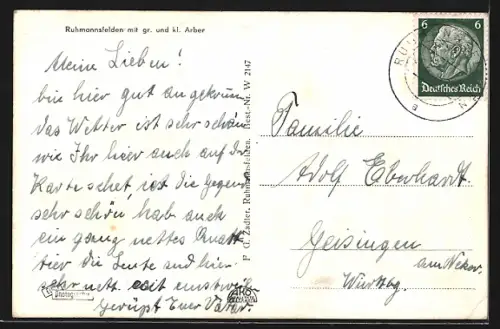 Ruhmannsfelden mit gr. und kl. Arber
Meine Lieben!
bin hier gut angekomm
das Wetter ist sehr schön
wie Ihr hier auch auf der
Karte sehet, ist die Gegend
sehr schön, hab auch
ein ganz nettes Quatt
tier die Leute sind hier
sehr nett seit
Euer Vater
P. G. Zadler, Ruhmannsfelden. Best.-Nr. W 2147
6 6
Deutsches Reich
Familie
Adolf Eberhardt
Geisingen
am Neckar
Württbg.